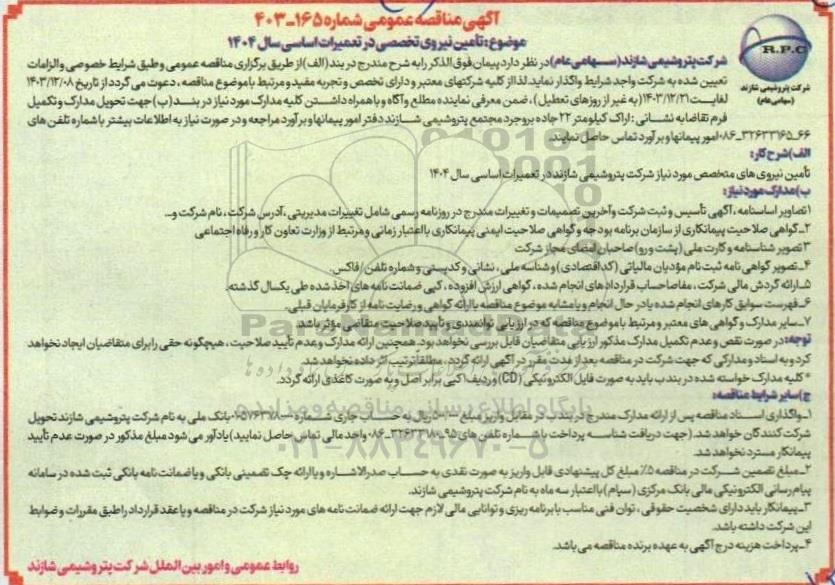 آگهی مناقصه عمومی شماره ۱۶۵-۴۰۳
موضوع: تامین نیروی تخصصی در تعمیرات اساسی سال ۱۴۰۴
R.P.C
شرکت پتروشیمی شازند
(سهامی عام)
شرکت پتروشیمی شازند (سهامی عام) در نظر دارد پیمان فوق الذکر را به شرح مندرج در بند (الف) از طریق برگزاری مناقصه عمومی و طبق شرایط خصوصی و الزامات
تعیین شده به شرکت واجد شرایط واگذار نماید. لذا از کلیه شرکتهای معتبر و دارای تخصص و تجربه مفید و مرتبط با موضوع مناقصه، دعوت می گردد از تاریخ ۱۴۰۳/۱۲/۰۸
لغایت ۱۴۰۳/۱۲/۲۱ (به غیر از روزهای تعطیل)، ضمن معرفی نماینده مطلع و آگاه و با همراه داشتن کلیه مدارک مورد نیاز در بند (ب) جهت تحویل مدارک و تکمیل
فرم تقاضا به نشانی: اراک کیلومتر ۲۲ جاده بروجرد مجتمع پتروشیمی شازند دفتر امور پیمانها و برآورد مراجعه و در صورت نیاز به اطلاعات بیشتر با شماره تلفن های
۶۶-۳۲۶۳۳۱۶۵-۰۸۶ امور پیمانها و برآورد تماس حاصل نمایند.
الف) شرح کار:
تأمین نیروی های متخصص مورد نیاز شرکت پتروشیمی شازند در تعمیرات اساسی سال ۱۴۰۴
ب) مدارک مورد نیاز:
۱-تصاویر اساسنامه، آگهی تأسیس و ثبت شرکت و آخرین تصمیمات و تغییرات مندرج در روزنامه رسمی شامل تغییرات مدیریتی، آدرس شرکت، نام شرکت و...
۲-گواهی صلاحیت پیمانکاری از سازمان برنامه بودجه و گواهی صلاحیت ایمنی پیمانکاری با اعتبار زمانی و مرتبط از وزارت تعاون کار و رفاه اجتماعی
۳-تصویر شناسنامه و کارت ملی (پشت و رو) صاحبان امضای مجاز شرکت
۴-تصویر گواهی نامه ثبت نام مؤدیان مالیاتی (کد اقتصادی) و شناسه ملی، نشانی و کدپستی و شماره تلفن/فاکس.
۵-ارائه گردش مالی شرکت، مفاصاحساب قراردادهای انجام شده، گواهی ارزش افزوده، کپی ضمانت نامه های اخذ شده طی یکسال گذشته.
۶-فهرست سوابق کارهای انجام شده یا در حال انجام و یا مشابه موضوع مناقصه با ارائه گواهی و رضایت نامه از کارفرمایان قبلی.
۷-سایر مدارک و گواهی های معتبر و مرتبط با موضوع مناقصه که در ارزیابی توانمندی و تأیید صلاحیت متقاضی مؤثر باشد.
توجه: در صورت نقص و عدم تکمیل مدارک مذکور ارزیابی متقاضیان قابل بررسی نخواهد بود. همچنین ارائه مدارک و عدم تأیید صلاحیت، هیچگونه حقی را برای متقاضیان ایجاد نخواهد
کرد و به اسناد و مدارکی که جهت شرکت در مناقصه بعد از مدت مقرر در آگهی ارائه گردد، مطلقا ترتیب اثر داده نخواهد شد.
* کلیه مدارک خواسته شده در بند ب باید به صورت فایل الکترونیکی (CD) و ردیف ۱ کپی برابر اصل و به صورت کاغذی ارائه گردد.
ج) سایر شرایط مناقصه:
۱-واگذاری اسناد مناقصه پس از ارائه مدارک مندرج در بند ب در مقابل واریز مبلغ ریال به حساب جاری شماره بانک ملی به نام شرکت پتروشیمی شازند تحویل
شرکت کنندگان خواهد شد. (جهت دریافت شناسه پرداخت با شماره تلفن های واحد مالی تماس حاصل نمایید) یادآور می شود مبلغ مذکور در صورت عدم تأیید
پیمانکار مسترد نخواهد شد.
۲-مبلغ تضمین شرکت در مناقصه ۵٪ مبلغ کل پیشنهادی قابل واریز به صورت نقدی به حساب صدرالاشاره و یا ارائه چک تضمینی بانکی و یا ضمانت نامه بانکی ثبت شده در سامانه
پیام رسانی الکترونیکی مالی بانک مرکزی (سپام) با اعتبار سه ماه به نام شرکت پتروشیمی شازند.
۳-پیمانکار باید دارای شخصیت حقوقی، توان فنی مناسب با برنامه ریزی و توانایی مالی لازم جهت ارائه ضمانت نامه های مورد نیاز شرکت در مناقصه و یا عقد قرارداد را طبق مقررات و ضوابط
این شرکت داشته باشد.
۴-پرداخت هزینه درج آگهی به عهده برنده مناقصه می باشد.
روابط عمومی و امور بین الملل شرکت پتروشیمی شازند
پایگاه اطلاع رسانی مناقصه و مزایده
۰۲۱-۸۸۳۴۹۶۷۰-۵